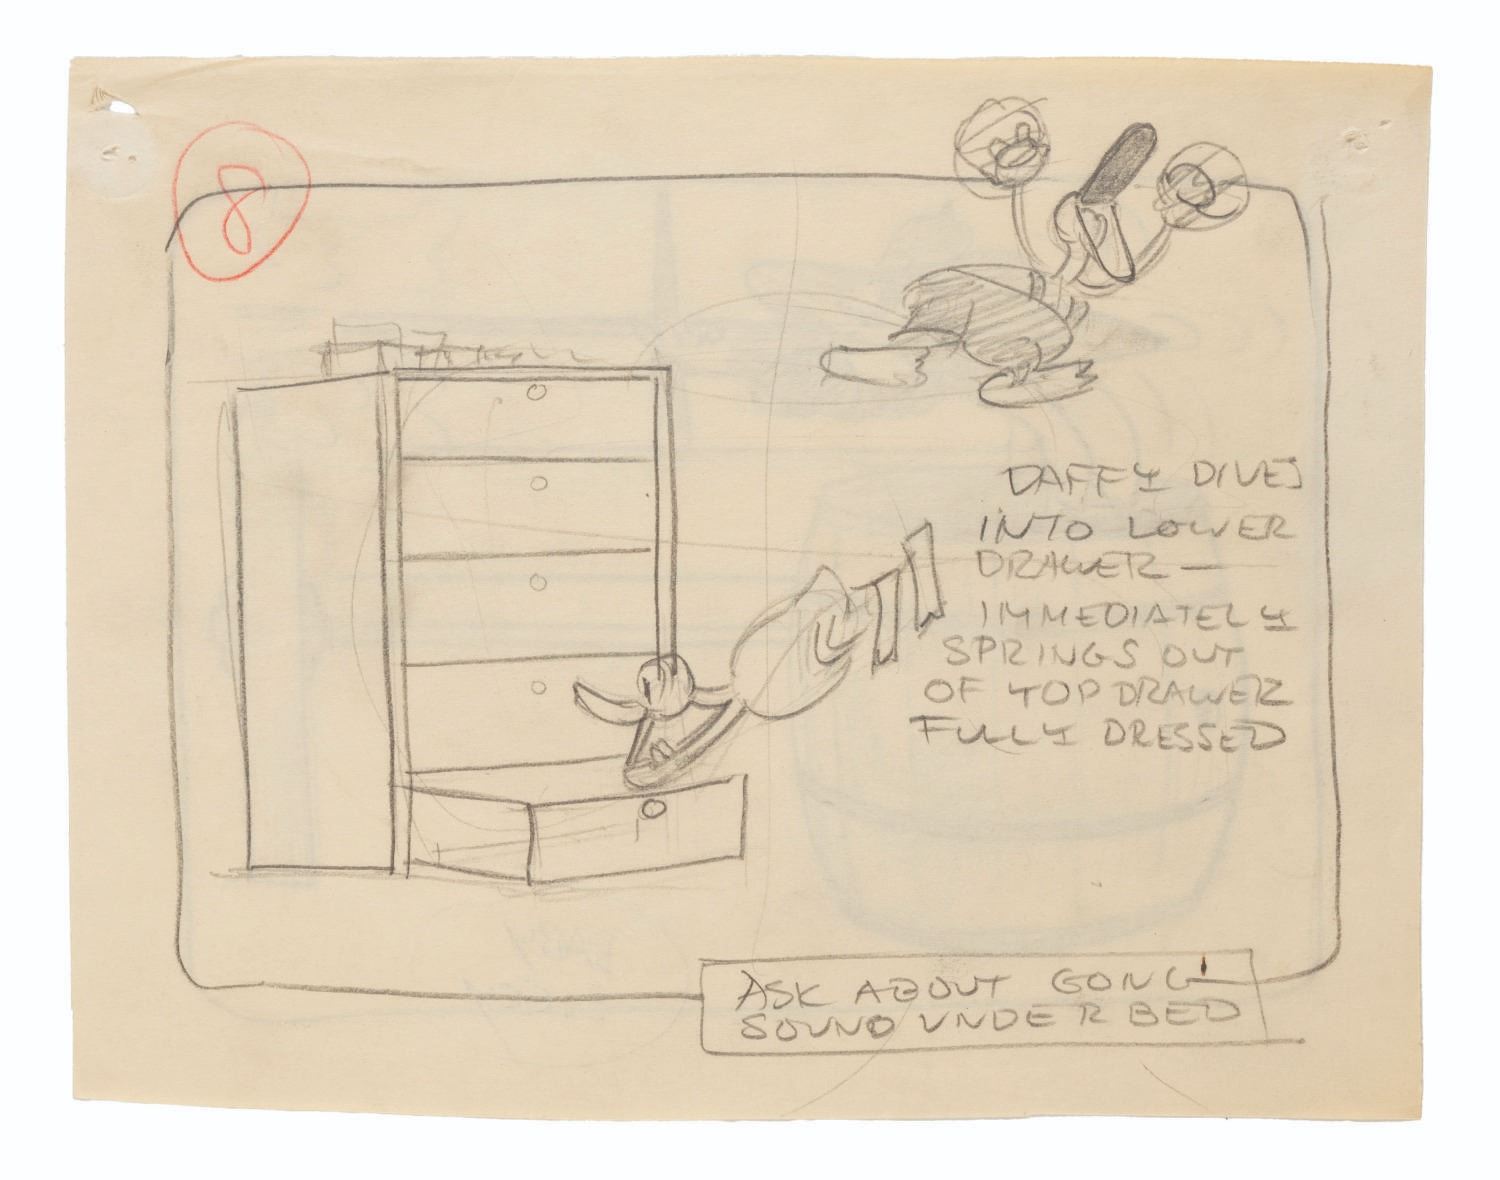 8
DAFFY DIVES
INTO LOWER
DRAWER —
IMMEDIATELY
SPRINGS OUT
OF TOP DRAWER
FULLY DRESSED
ASK ABOUT GONG
SOUND UNDER BED